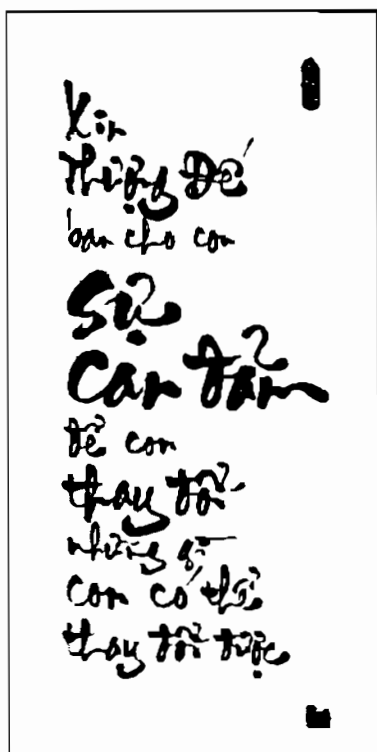 Xin
Thượng Đế
ban cho con
sự
can đảm
để con
thay đổi
những gì
con có thể
thay đổi được